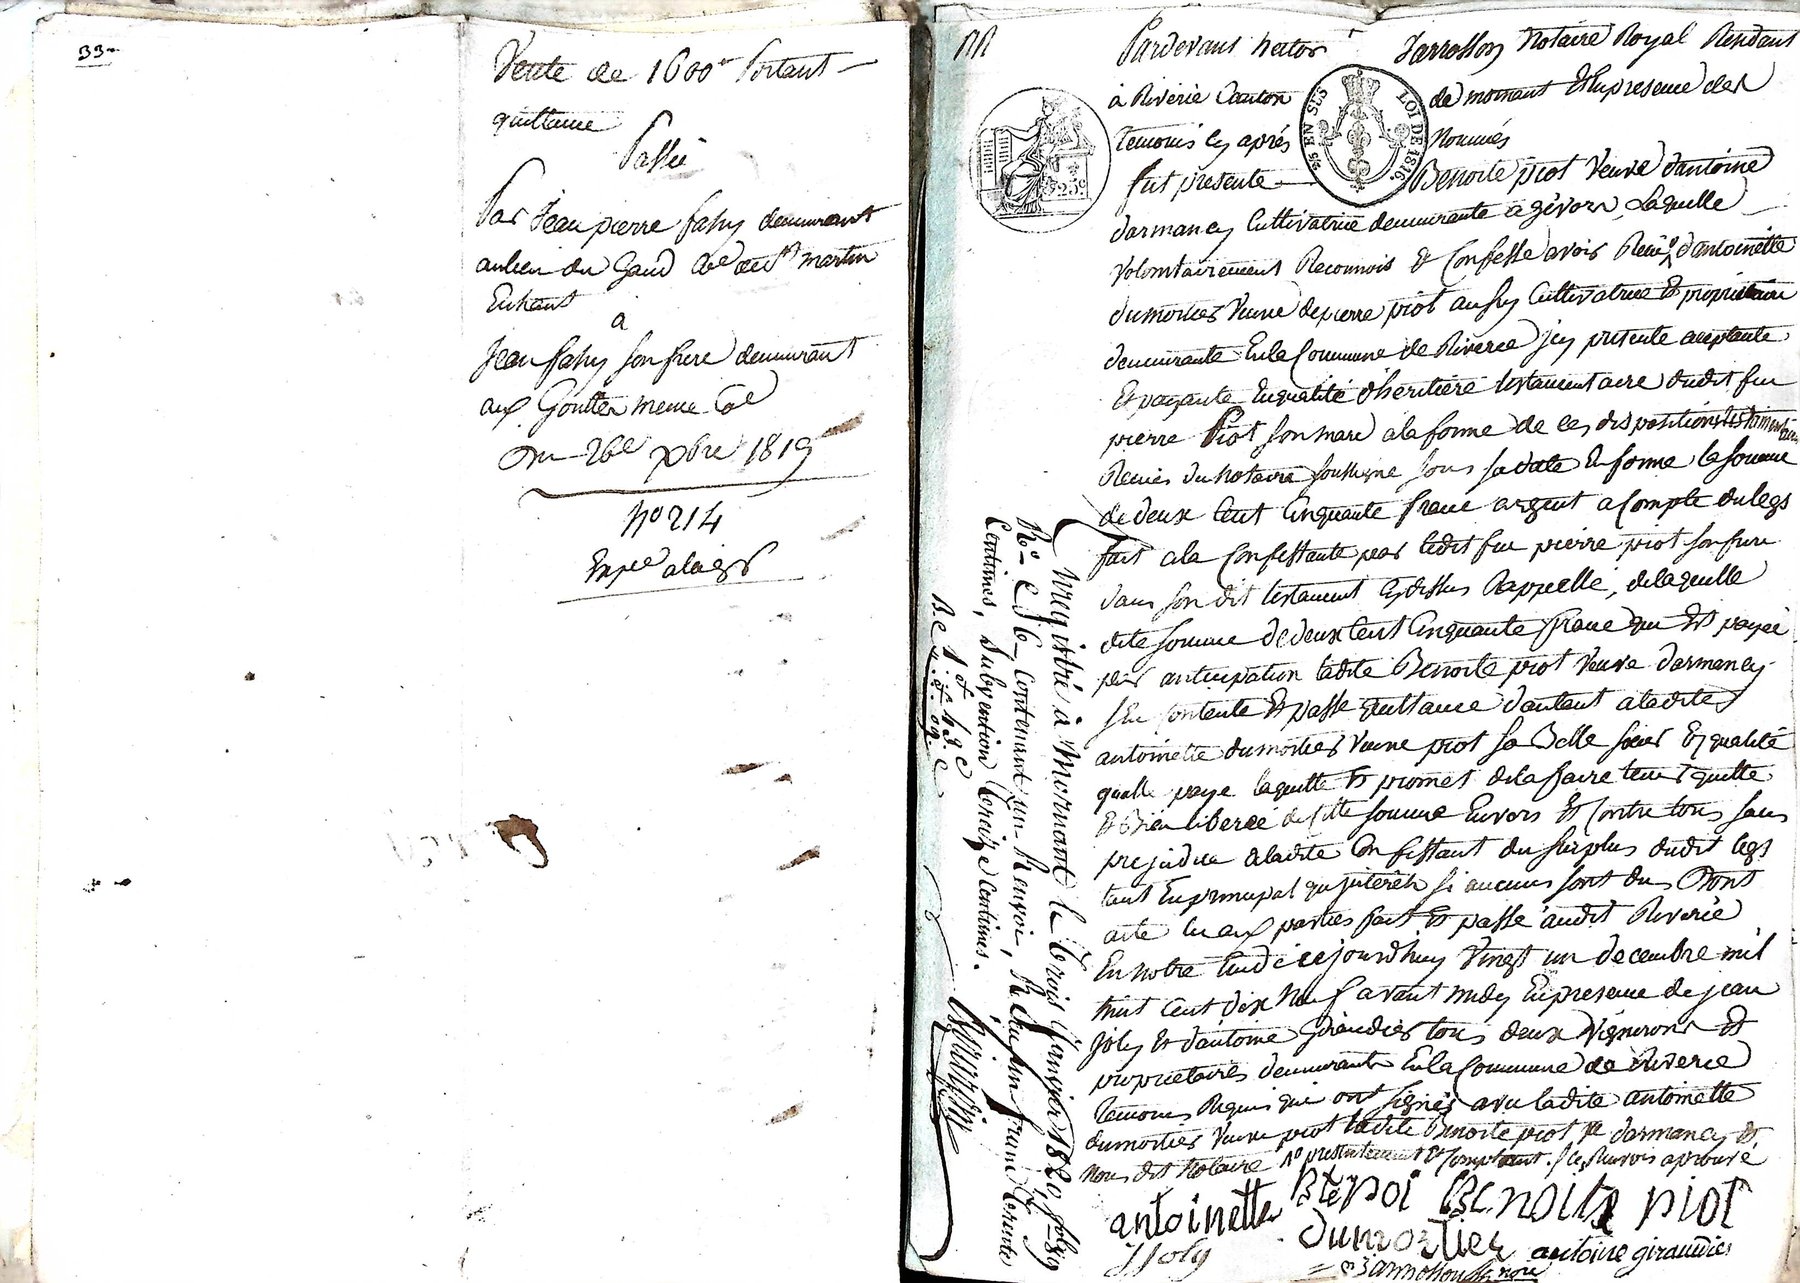 33
Vente de 1600 ₶ Portant
quittance
Passé
Par Jean pierre fahy demeurant
au lieu du Gand Cne de St martin
En haut
a
Jean fahy son frere demeurant
aux Gouttes meme Cne
Du 26e Xbre 1819
No 214
Expée
Pardevant hector Jarrosson Notaire Royal Résidant
à Riverie Canton de mornant Et En presence des
Temoins cy après Nommés
fut presente Benoite piot Veuve d'antoine
darmancy Cultivatrice demeurante a givors, Laquelle
Volontairement Reconnois & Confesse avoir Reçu d'antoinette
dumortier Veuve de pierre piot aussy Cultivatrice Et propriétaire
demeurante En la Commune de Riverie jcy presente acceptante
Et payante En qualité d'héritière testamentaire dudit feu
pierre Piot son mari a la forme de ces dispositions testamentaires
Recues du Notaire soussigné sous sa date En forme la somme
de deux Cent Cinquante franc argent a Compte du legs
fait a la Confessante par ledit feu pierre piot son frere
dans son dit testament cy dessus Rappellé, de laquelle
dite somme de deux Cent Cinquante franc qui Est payée
par anticipation ladite Benoite piot Veuve darmancy
sen Contente Et passe quittance d'autant a ladite
antoinette dumortier Veuve piot sa Belle soeur Eq qualité
quelle paye laquitte Et promet de la faire tenir quitte
Et Bien liberée de dite somme Envers Et Contre tous sans
prejudice a ladite Confessant du surplus dudit legs
tant En principal qu'jnterêts si aucuns sont dus Dont
acte lu aux parties fait Et passé audit Riverie
En notre Etude ce jourdhuy Vingt un decembre mil
huit Cent dix Neuf avant midy En presence de jean
joly Et d'antoine Giraudier tous deux Vignerons Et
proprietaires demeurants En la Commune de Riverie
temoins Requis qui ont signés avec ladite antoinette
dumortier Veuve piot ladite Benoite piot Ve darmancy Et
Nous dit Notaire 1o presentement Et Comptant. / Ce Renvois aprouvé
antoinette Benoite piot
dumortier
J Joly antoine giraudier
Jarrosson
25 EN SUS
LOI DE 1816
25c
Enregistré à Mornant le trois Janvier 1820, fol. 89
Ro. C. 5 6, Contenant un Renvoi, Reçu un franc trente
Centimes, Subvention treize centimes.